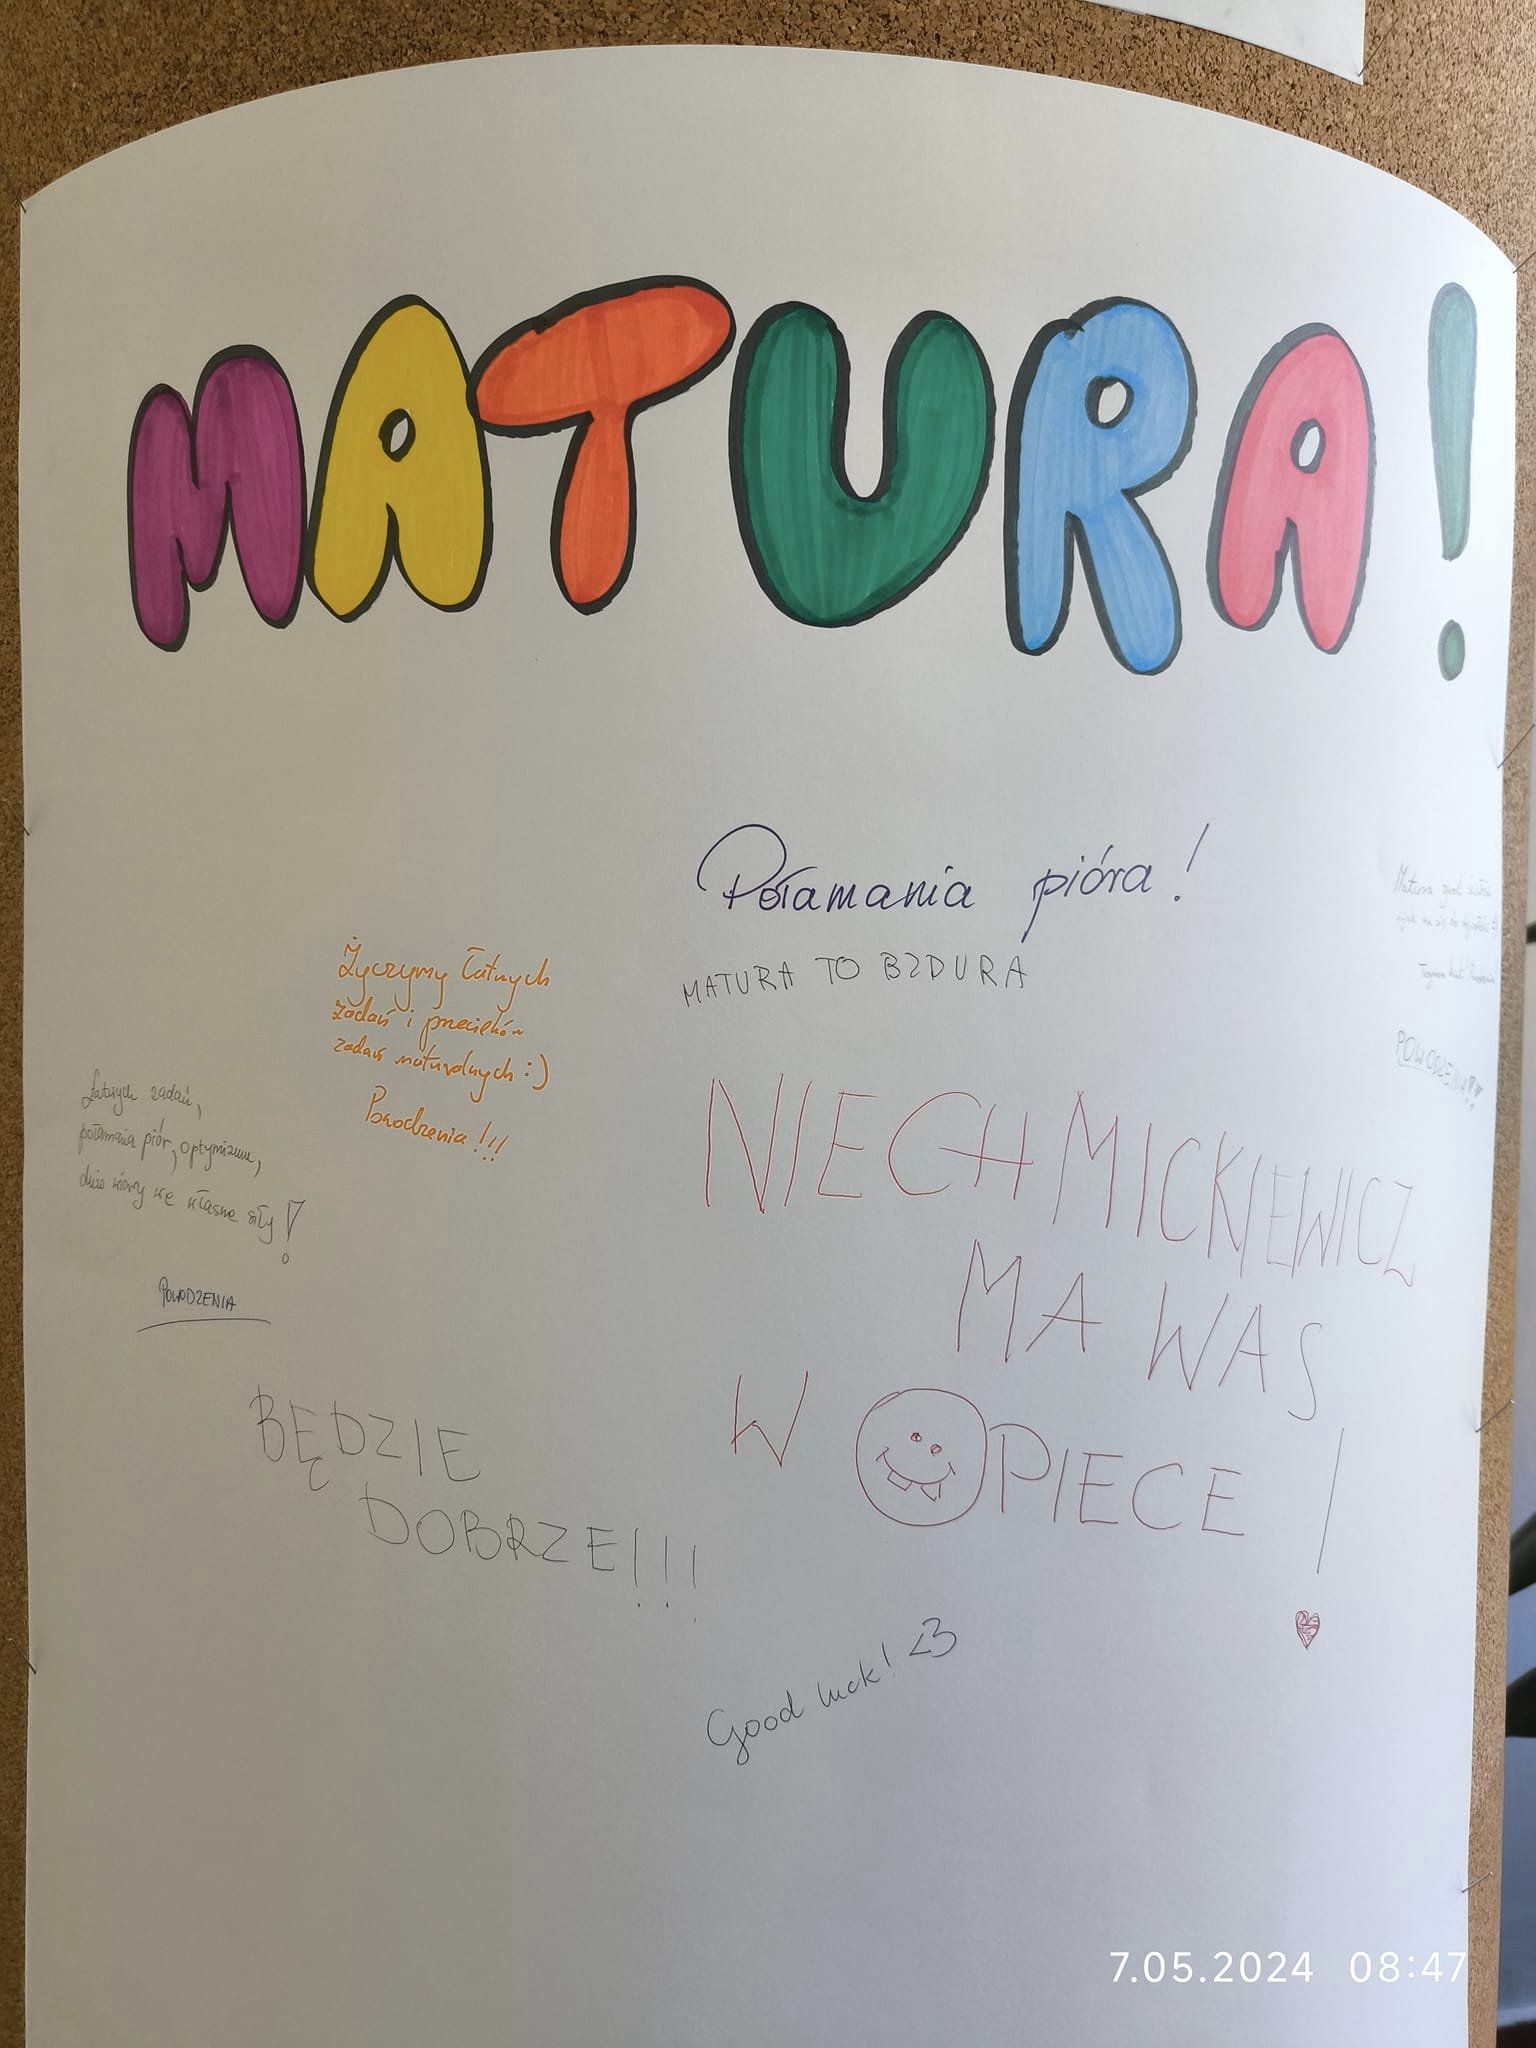 MATURA!
Połamania pióra!
MATURA TO BZDURA
Życzymy łatwych
zadań i przecieków
zadań maturalnych :)
Powodzenia!!!
Łatwych zadań,
połamania piór, optymizmu,
dużo wiary we własne siły!
POWODZENIA
Matura
POWODZENIA!!
NIECH MICKIEWICZ
MA WAS
W OPIECE!
BĘDZIE
DOBRZE!!!
Good luck! <3
7.05.2024 08:47